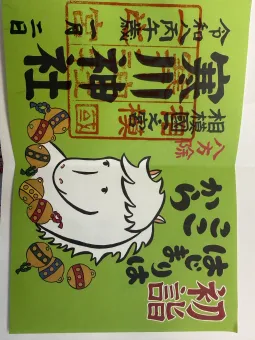 初詣
はじまりは
ここから
八方除
相模國一之宮
寒川神社
令和八丙午歳 一月二日